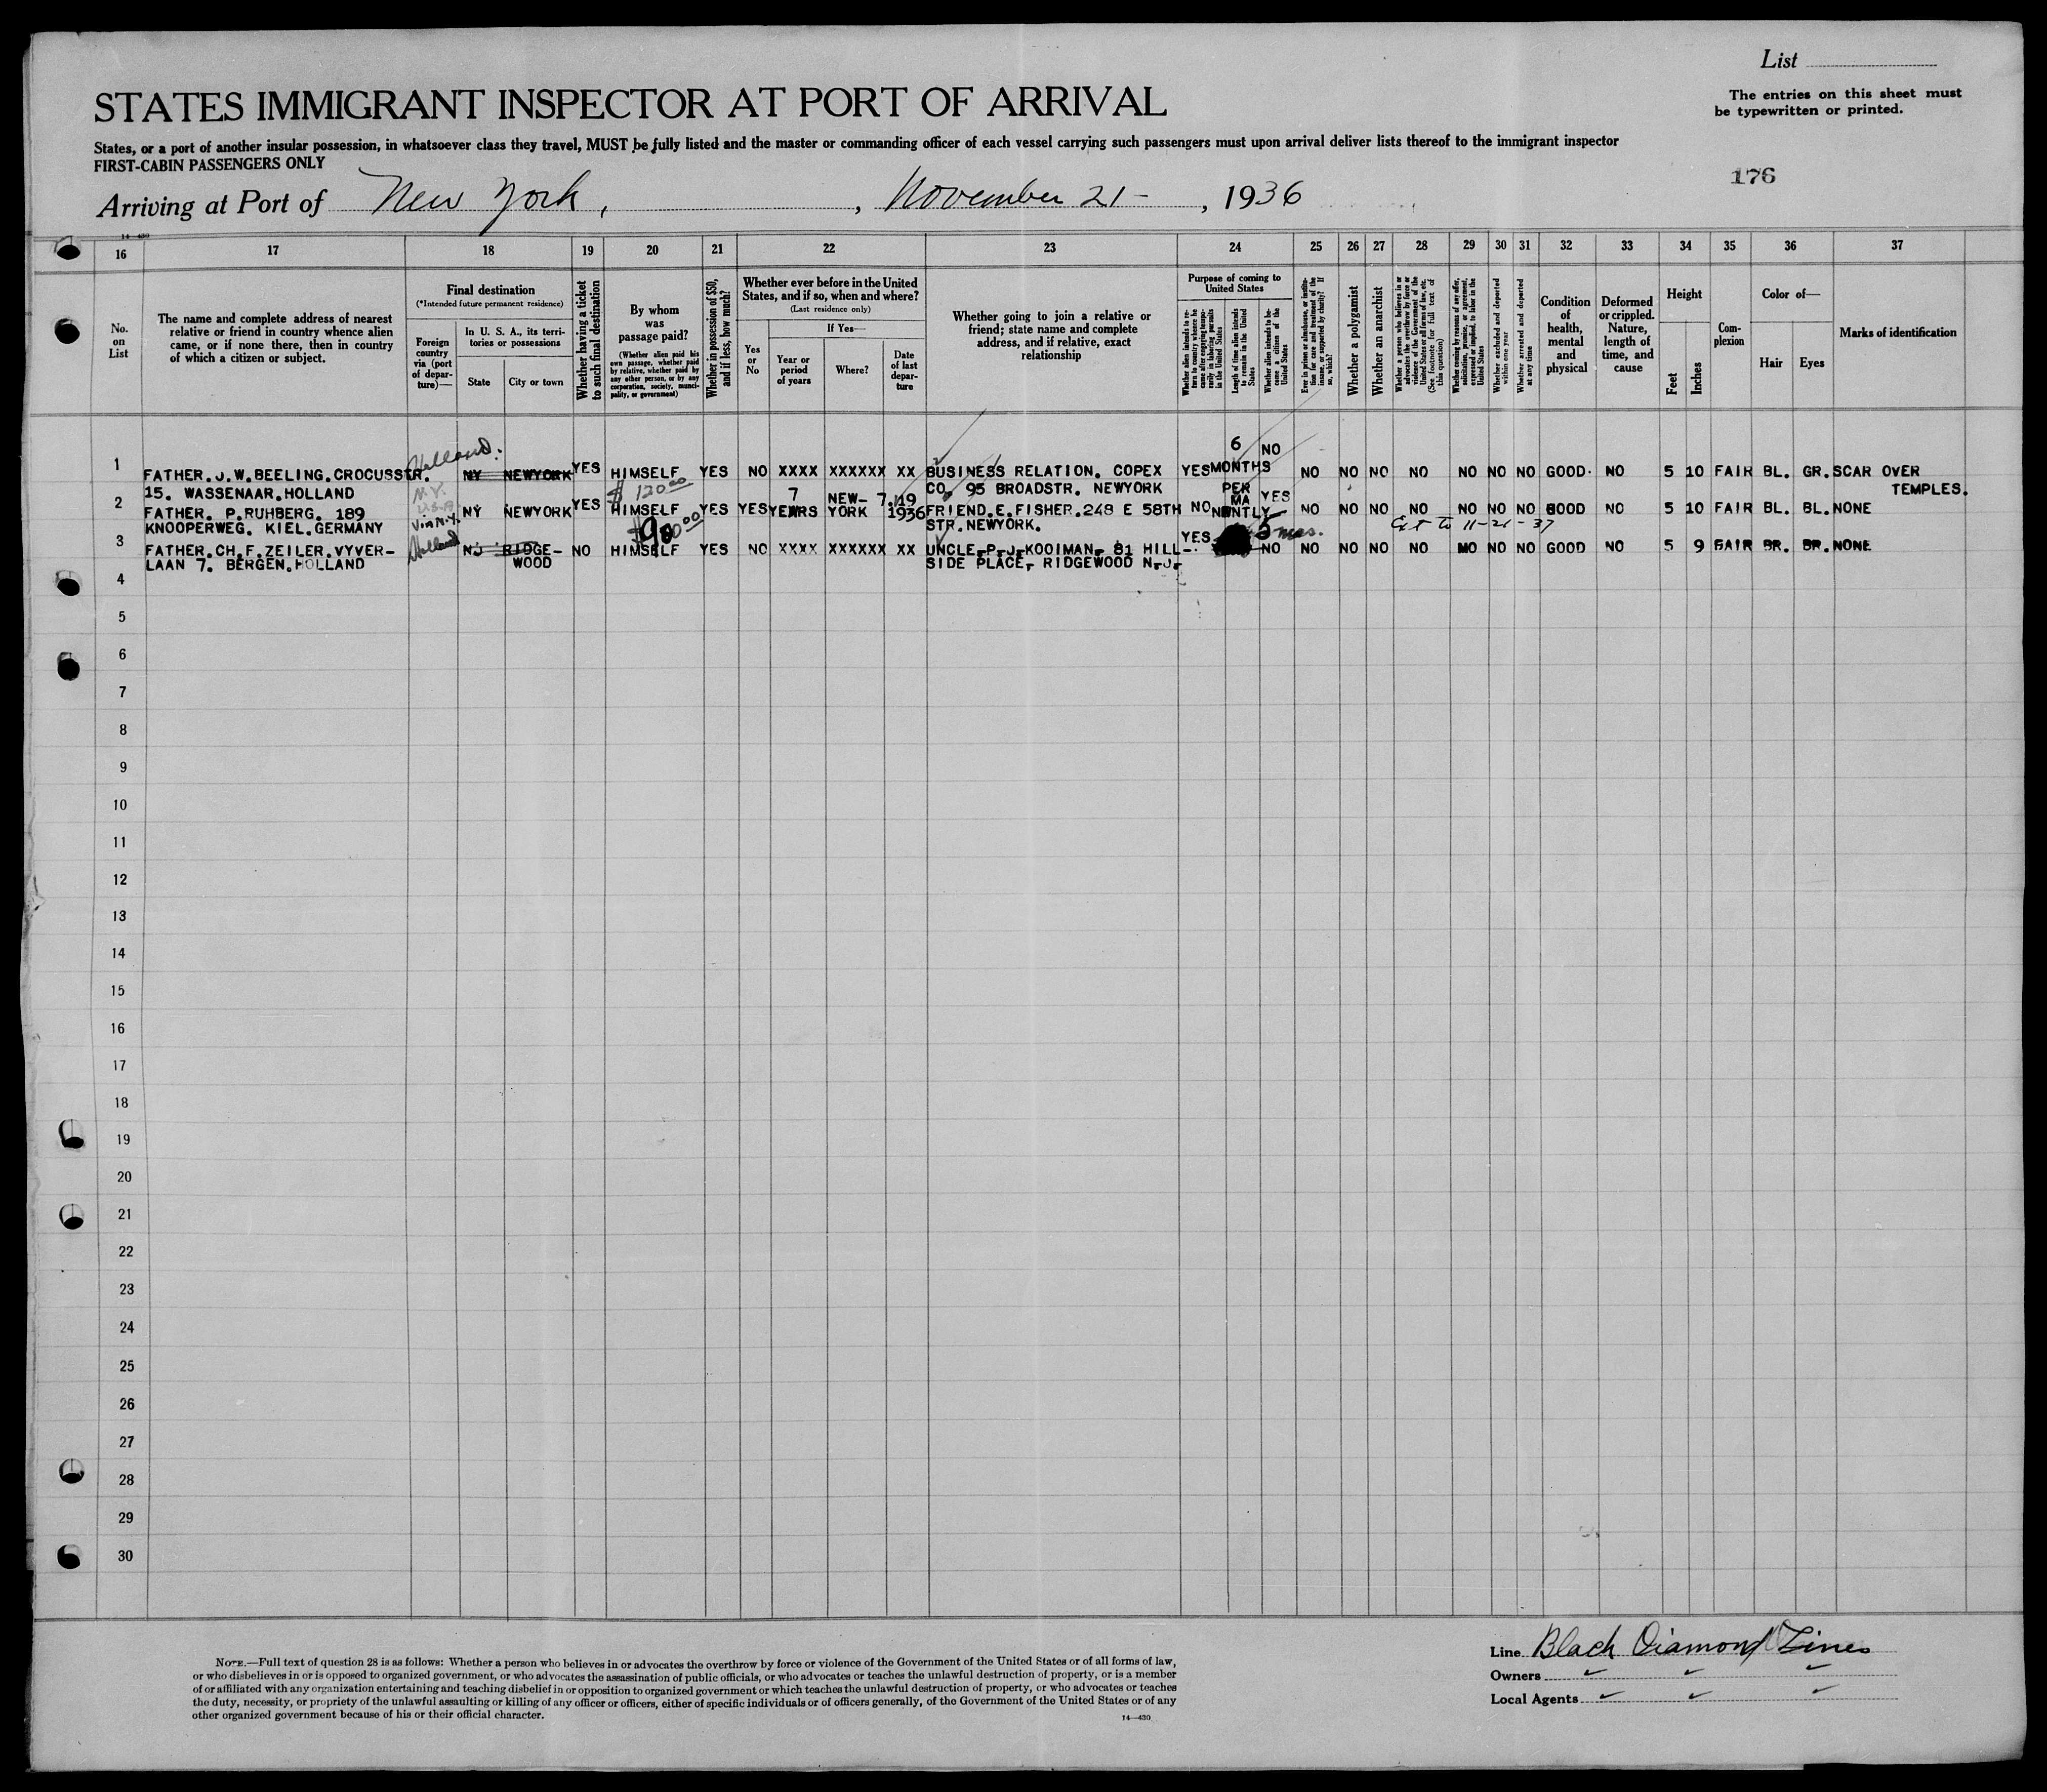 List
STATES IMMIGRANT INSPECTOR AT PORT OF ARRIVAL
The entries on this sheet must
be typewritten or printed.
States, or a port of another insular possession, in whatsoever class they travel, MUST be fully listed and the master or commanding officer of each vessel carrying such passengers must upon arrival deliver lists thereof to the immigrant inspector
FIRST-CABIN PASSENGERS ONLY
176
Arriving at Port of New York, , November 21- , 1936
14-430
16 17 18 19 20 21 22 23 24 25 26 27 28 29 30 31 32 33 34 35 36 37
No. on List
The name and complete address of nearest relative or friend in country whence alien came, or if none there, then in country of which a citizen or subject.
Final destination
(*Intended future permanent residence)
Foreign country via (port of departure)—
In U. S. A., its territories or possessions
State
City or town
Whether having a ticket to such final destination
By whom was passage paid?
(Whether alien paid his own passage, whether paid by relative, whether paid by any other person, or by any corporation, society, municipality, or government)
Whether in possession of $50, and if less, how much?
Whether ever before in the United States, and if so, when and where?
(Last residence only)
Yes or No
If Yes—
Year or period of years
Where?
Date of last departure
Whether going to join a relative or friend; state name and complete address, and if relative, exact relationship
Purpose of coming to United States
Whether alien intends to return to country whence he came after engaging temporarily in laboring pursuits in the United States
Length of time alien intends to remain in the United States
Whether alien intends to become a citizen of the United States
Ever in prison or almshouse, or institution for care and treatment of the insane, or supported by charity? If so, which?
Whether a polygamist
Whether an anarchist
Whether a person who believes in or advocates the overthrow by force or violence of the Government of the United States or all forms of law, etc. (See footnote for full text of this question)
Whether coming by reasons of any offer, solicitation, promise, or agreement, expressed or implied, to labor in the United States
Whether excluded and deported within one year
Whether arrested and deported at any time
Condition of health, mental and physical
Deformed or crippled. Nature, length of time, and cause
Height
Feet
Inches
Complexion
Color of—
Hair
Eyes
Marks of identification
Holland.
6 NO
1 FATHER.J.W.BEELING.CROCUSSTR. NY NEWYORK YES HIMSELF YES NO XXXX XXXXXX XX BUSINESS RELATION. COPEX YES MONTHS NO NO NO NO NO NO NO GOOD. NO 5 10 FAIR BL. GR. SCAR OVER
15. WASSENAAR.HOLLAND N.Y. $ 120.00 CO. 95 BROADSTR. NEWYORK TEMPLES.
U.S.A. 7 NEW- 7.119 PER MA YES
2 FATHER. P.RUHBERG. 189 NY NEWYORK YES HIMSELF YES YES YEARS YORK 1936 FRIEND.E.FISHER.248 E 58TH NO NENTLY NO NO NO NO NO NO NO GOOD NO 5 10 FAIR BL. BL. NONE
KNOOPERWEG. KIEL.GERMANY via N.Y. STR.NEWYORK. 5 mos. Ext to 11-21-37
3 FATHER.CH.F.ZEILER.VYVER- Holland NJ RIDGE- NO HIMSELF YES NO XXXX XXXXXX XX UNCLE.P.J.KOOIMAN. 81 HILL- YES NO NO NO NO NO NO NO NO GOOD NO 5 9 FAIR BR. BR. NONE
LAAN 7. BERGEN.HOLLAND WOOD SIDE PLACE, RIDGEWOOD N.J.
4
5
6
7
8
9
10
11
12
13
14
15
16
17
18
19
20
21
22
23
24
25
26
27
28
29
30
NOTE.—Full text of question 28 is as follows: Whether a person who believes in or advocates the overthrow by force or violence of the Government of the United States or of all forms of law,
or who disbelieves in or is opposed to organized government, or who advocates the assassination of public officials, or who advocates or teaches the unlawful destruction of property, or is a member
of or affiliated with any organization entertaining and teaching disbelief in or opposition to organized government or which teaches the unlawful destruction of property, or who advocates or teaches
the duty, necessity, or propriety of the unlawful assaulting or killing of any officer or officers, either of specific individuals or of officers generally, of the Government of the United States or of any
other organized government because of his or their official character.
14-430
Line Black Diamond Lines
Owners
Local Agents